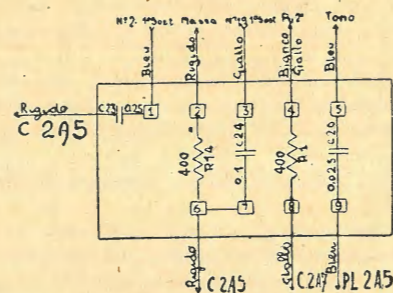 Nº2. 1ª Sost Massa nº19 1ª Sost Pₒ 2ª Tono
Bleu Rigido Giallo Bianco Giallo Bleu
Rigido C23 0.25 1 2 3 4 5
C 2A5
400 R14 0.1 C24 400 R1 0.025 C20
6 7 8 9
Rigido C2A5 Giallo C2A7 Bleu PL 2A5